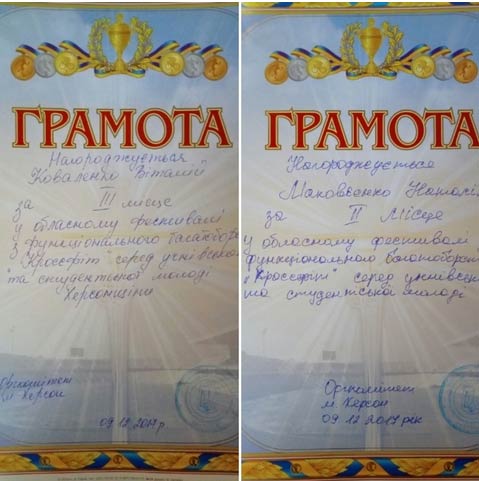 ГРАМОТА
Нагороджується
Коваленко Віталій
за III місце
у обласному фестивалі
з функціонального багатобор
"Кроссфіт" серед учнівської
та студентської молоді
Херсонщини
Оргкомітет
м. Херсон
09.12.2017 р
ГРАМОТА
Нагороджується
Маковієнко Наталія
за II Місце
у обласному фестивалі
функціонального багатоборст
"Кроссфіт" серед учнівської
та студентської молоді
Оргкомітет
м. Херсон
09.12.2017 рік